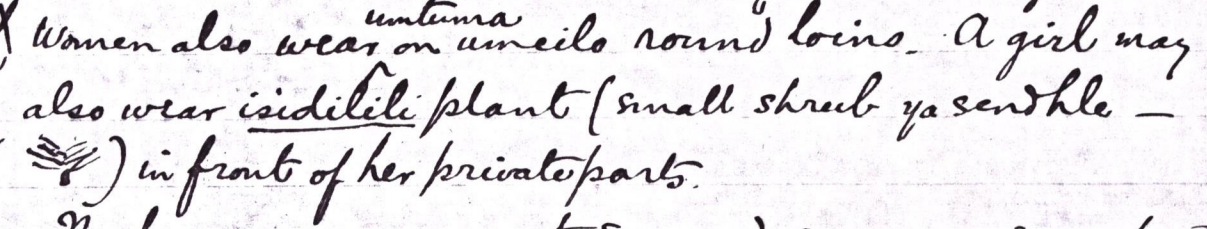 Women also wear umtuma on umcilo round loins. A girl may
also wear isidilili plant (small shrub ya sendhle —
) in front of her private parts.